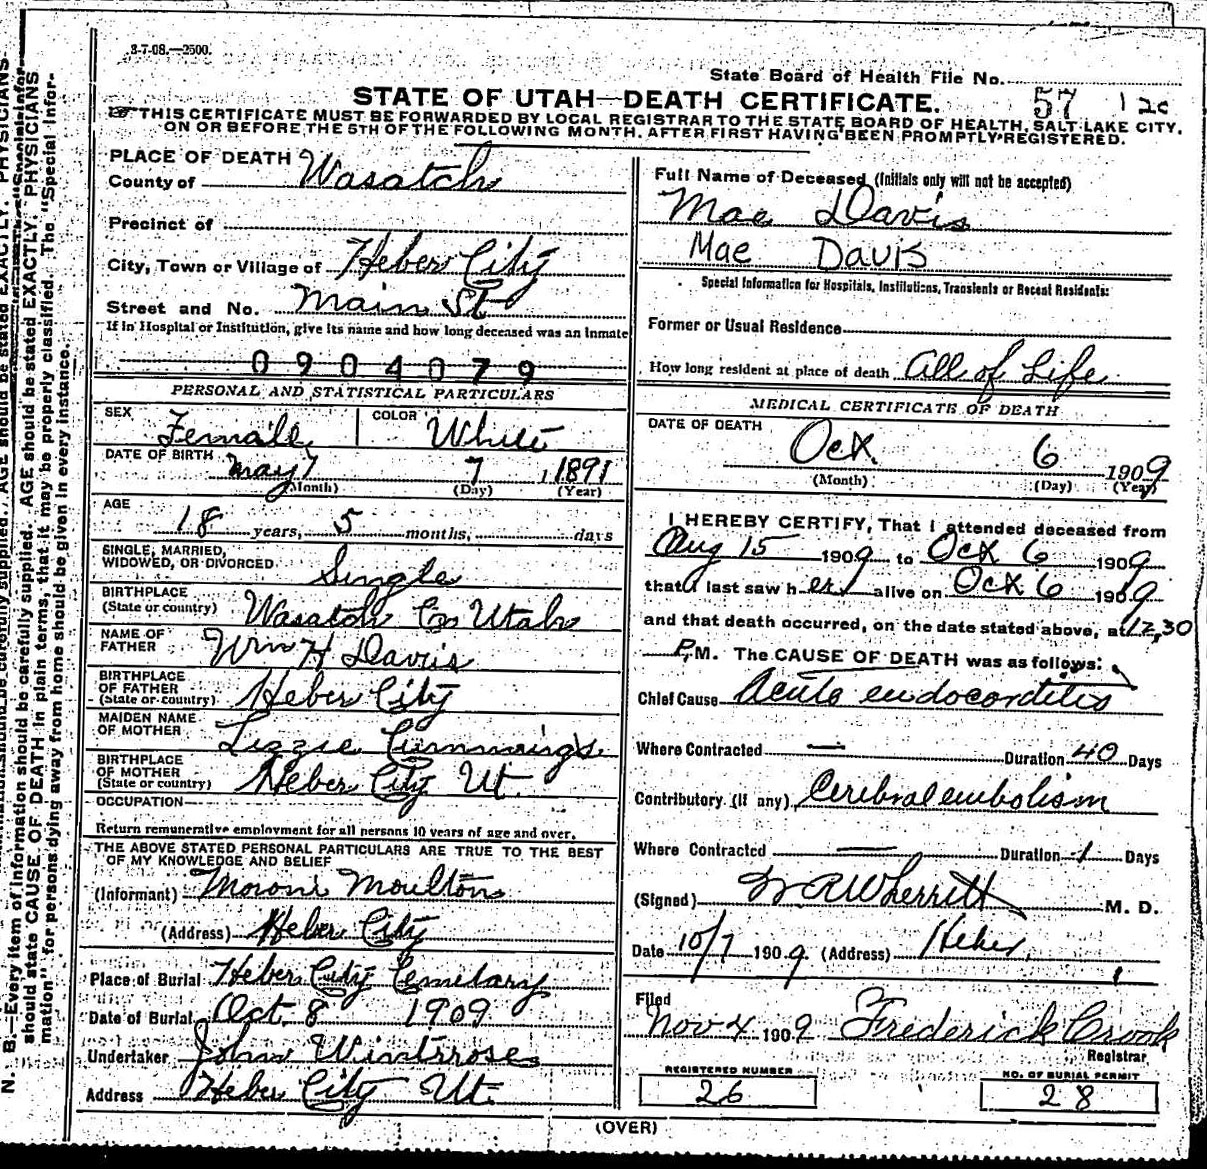 3-7-08.—2500.
State Board of Health File No.
57 120
STATE OF UTAH—DEATH CERTIFICATE.
THIS CERTIFICATE MUST BE FORWARDED BY LOCAL REGISTRAR TO THE STATE BOARD OF HEALTH, SALT LAKE CITY,
ON OR BEFORE THE 5TH OF THE FOLLOWING MONTH, AFTER FIRST HAVING BEEN PROMPTLY REGISTERED.
PLACE OF DEATH
County of Wasatch
Precinct of
City, Town or Village of Heber City
Street and No. Main St
If in Hospital or Institution, give its name and how long deceased was an inmate
0904079
PERSONAL AND STATISTICAL PARTICULARS
SEX Female COLOR White
DATE OF BIRTH May 7 7 1891
(Month) (Day) (Year)
AGE 18 years, 5 months, days
SINGLE, MARRIED,
WIDOWED, OR DIVORCED Single
BIRTHPLACE
(State or country) Wasatch Co Utah
NAME OF
FATHER Wm H Davis
BIRTHPLACE
OF FATHER
(State or country) Heber City
MAIDEN NAME
OF MOTHER Lizzie Cummings
BIRTHPLACE
OF MOTHER
(State or country) Heber City Ut.
OCCUPATION
Return remunerative employment for all persons 10 years of age and over.
THE ABOVE STATED PERSONAL PARTICULARS ARE TRUE TO THE BEST
OF MY KNOWLEDGE AND BELIEF
(Informant) Moroni Moulton
(Address) Heber City
Place of Burial Heber City Cemetary
Date of Burial Oct. 8 1909
Undertaker John Winterrose
Address Heber City Ut.
Full Name of Deceased (Initials only will not be accepted)
Mae Davis
Mae Davis
Special Information for Hospitals, Institutions, Transients or Recent Residents:
Former or Usual Residence
How long resident at place of death All of Life
MEDICAL CERTIFICATE OF DEATH
DATE OF DEATH
Oct. 6 1909
(Month) (Day) (Year)
I HEREBY CERTIFY, That I attended deceased from
Aug 15 1909 to Oct 6 1909
that I last saw her alive on Oct 6 1909
and that death occurred, on the date stated above, at 12,30
P.M. The CAUSE OF DEATH was as follows:
Chief Cause Acute endocorditis
Where Contracted — Duration 40 Days
Contributory (if any) Cerebral embolism
Where Contracted — Duration 1 Days
(Signed) W R Wherritt M. D.
Date 10/7 1909. (Address) Heber
Filed
Nov 4 1909 Frederick Crook
Registrar
REGISTERED NUMBER
26
NO. OF BURIAL PERMIT
28
(OVER)
N. B.—Every item of information should be carefully supplied. AGE should be stated EXACTLY. PHYSICIANS
should state CAUSE OF DEATH in plain terms, that it may be properly classified. The "Special Infor-
mation" for persons dying away from home should be given in every instance.